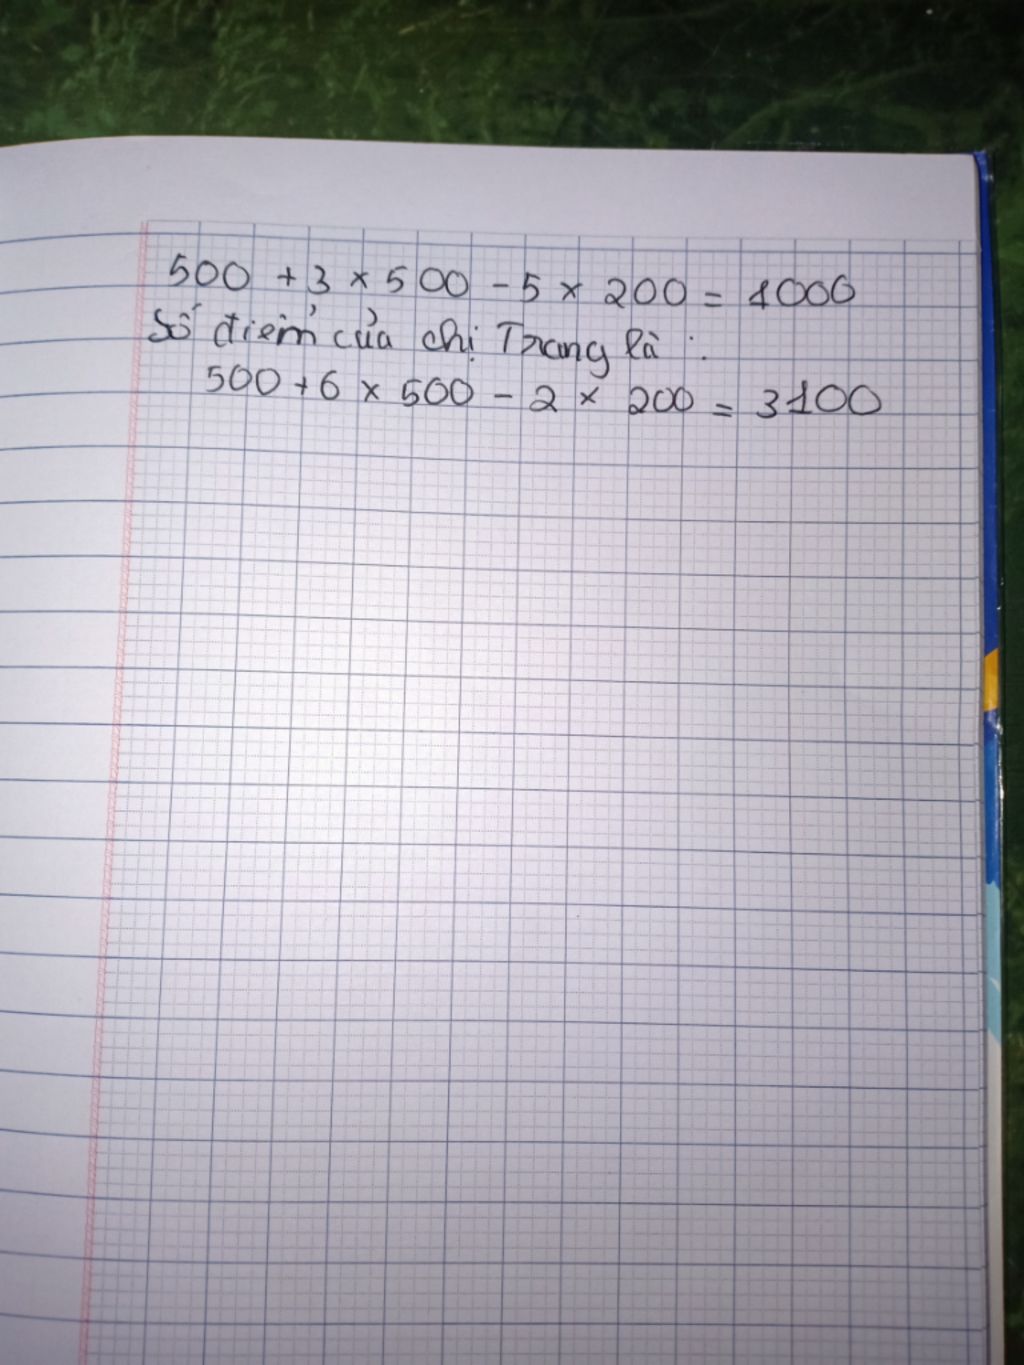 500 + 3 × 500 - 5 × 200 = 1000
Số điểm của chị Trang là :
500 + 6 × 500 - 2 × 200 = 3100